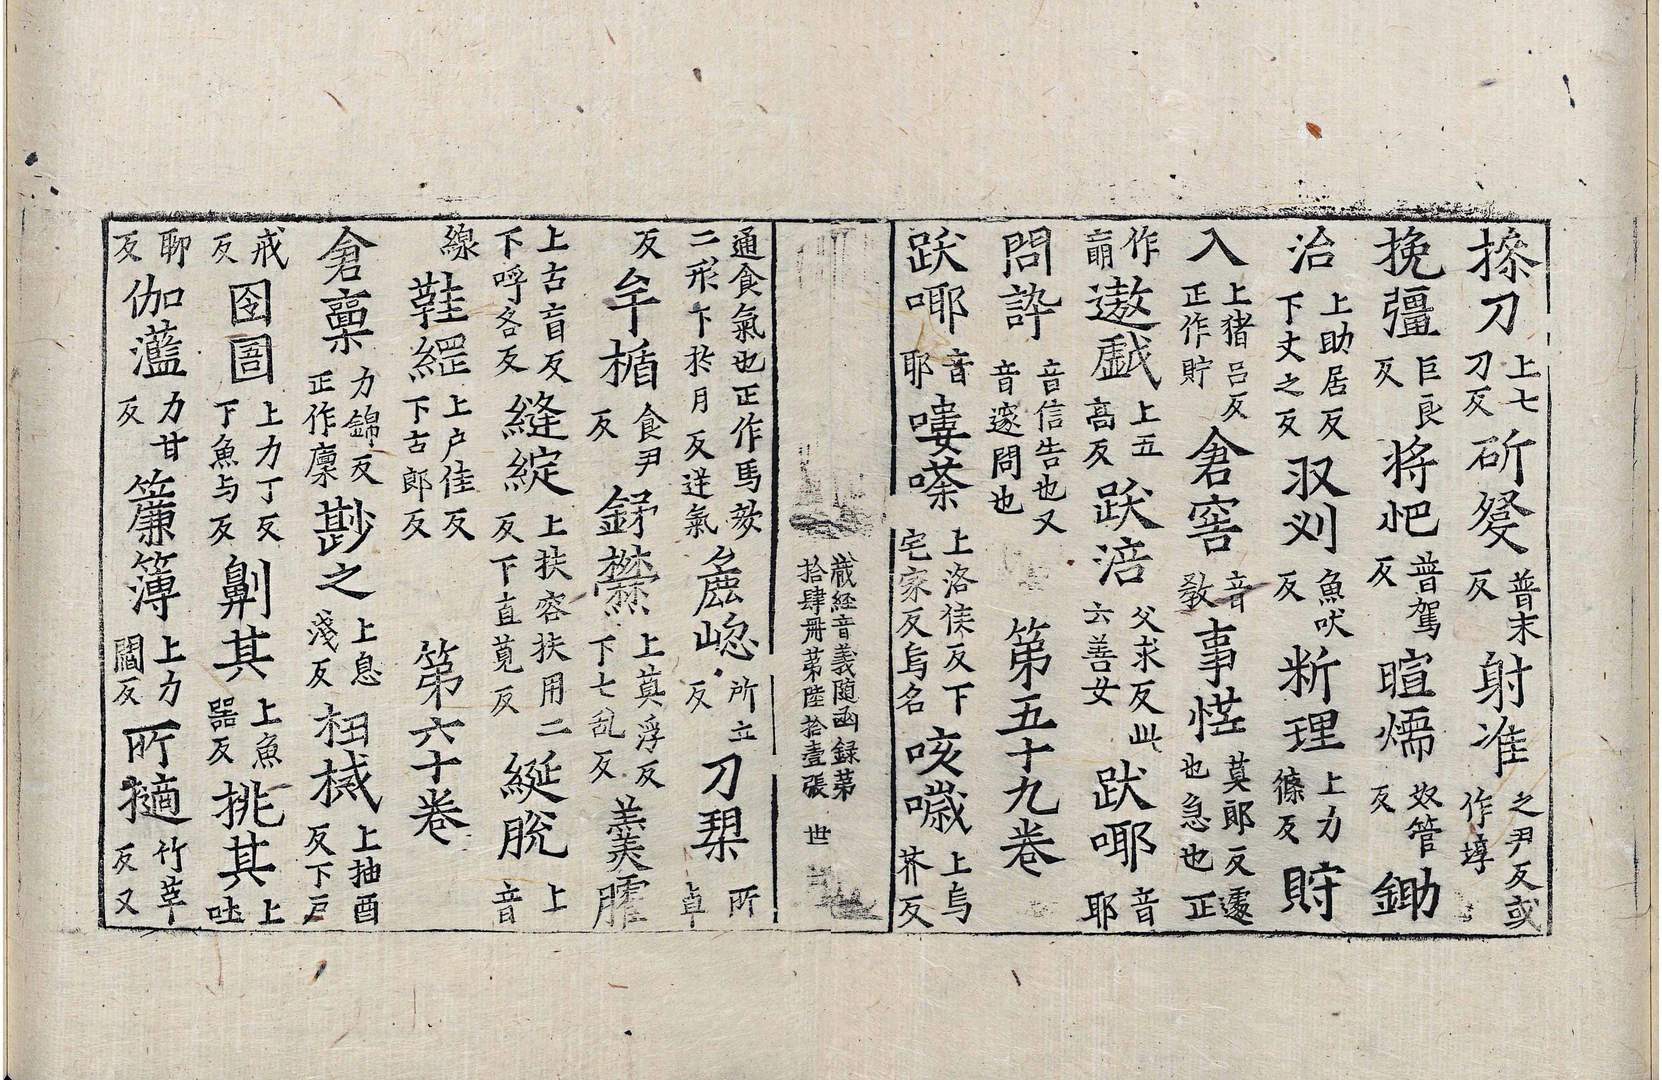 搽刀上七刀反斫癹普末反射准之尹反或作埻
挽彊巨良反将𢗲普駕反暄煗奴管反鋤
治上助居反下丈之反𭃌刈魚吠反断理上力條反貯
入上猪吕反正作貯倉窖音教事𢗅莫郎反遽也急也正
作𮌎遨戯上五高反趺涪父求反此六善女趺㖿音耶
問誶音信告也又音邃問也第五十九卷
趺㖿音耶嘍㗬上洛侯反下宅家反鳥名咳噦上烏芥反
藏經音義随函録第拾肆册第陸拾壹張 世
通食氣也正作馬欬二形下於月反逆氣麁㟌所立反刀㮚所卓
反牟楯食尹反𨥨㸑上莫浮反下七乱反羹臛上古盲反下呼各反縫綻上扶容扶用二反下直莧反綖脫上音
線鞵縕上户佳反下古郎反第六十卷
倉稟力錦反正作廩尠之上息淺反杻械上抽酉反下户
戒反囹圄上力丁反下魚与反劓其上魚器反挑其上吐
聊反伽藍力甘反簾簿上力閻反所擿竹革反又